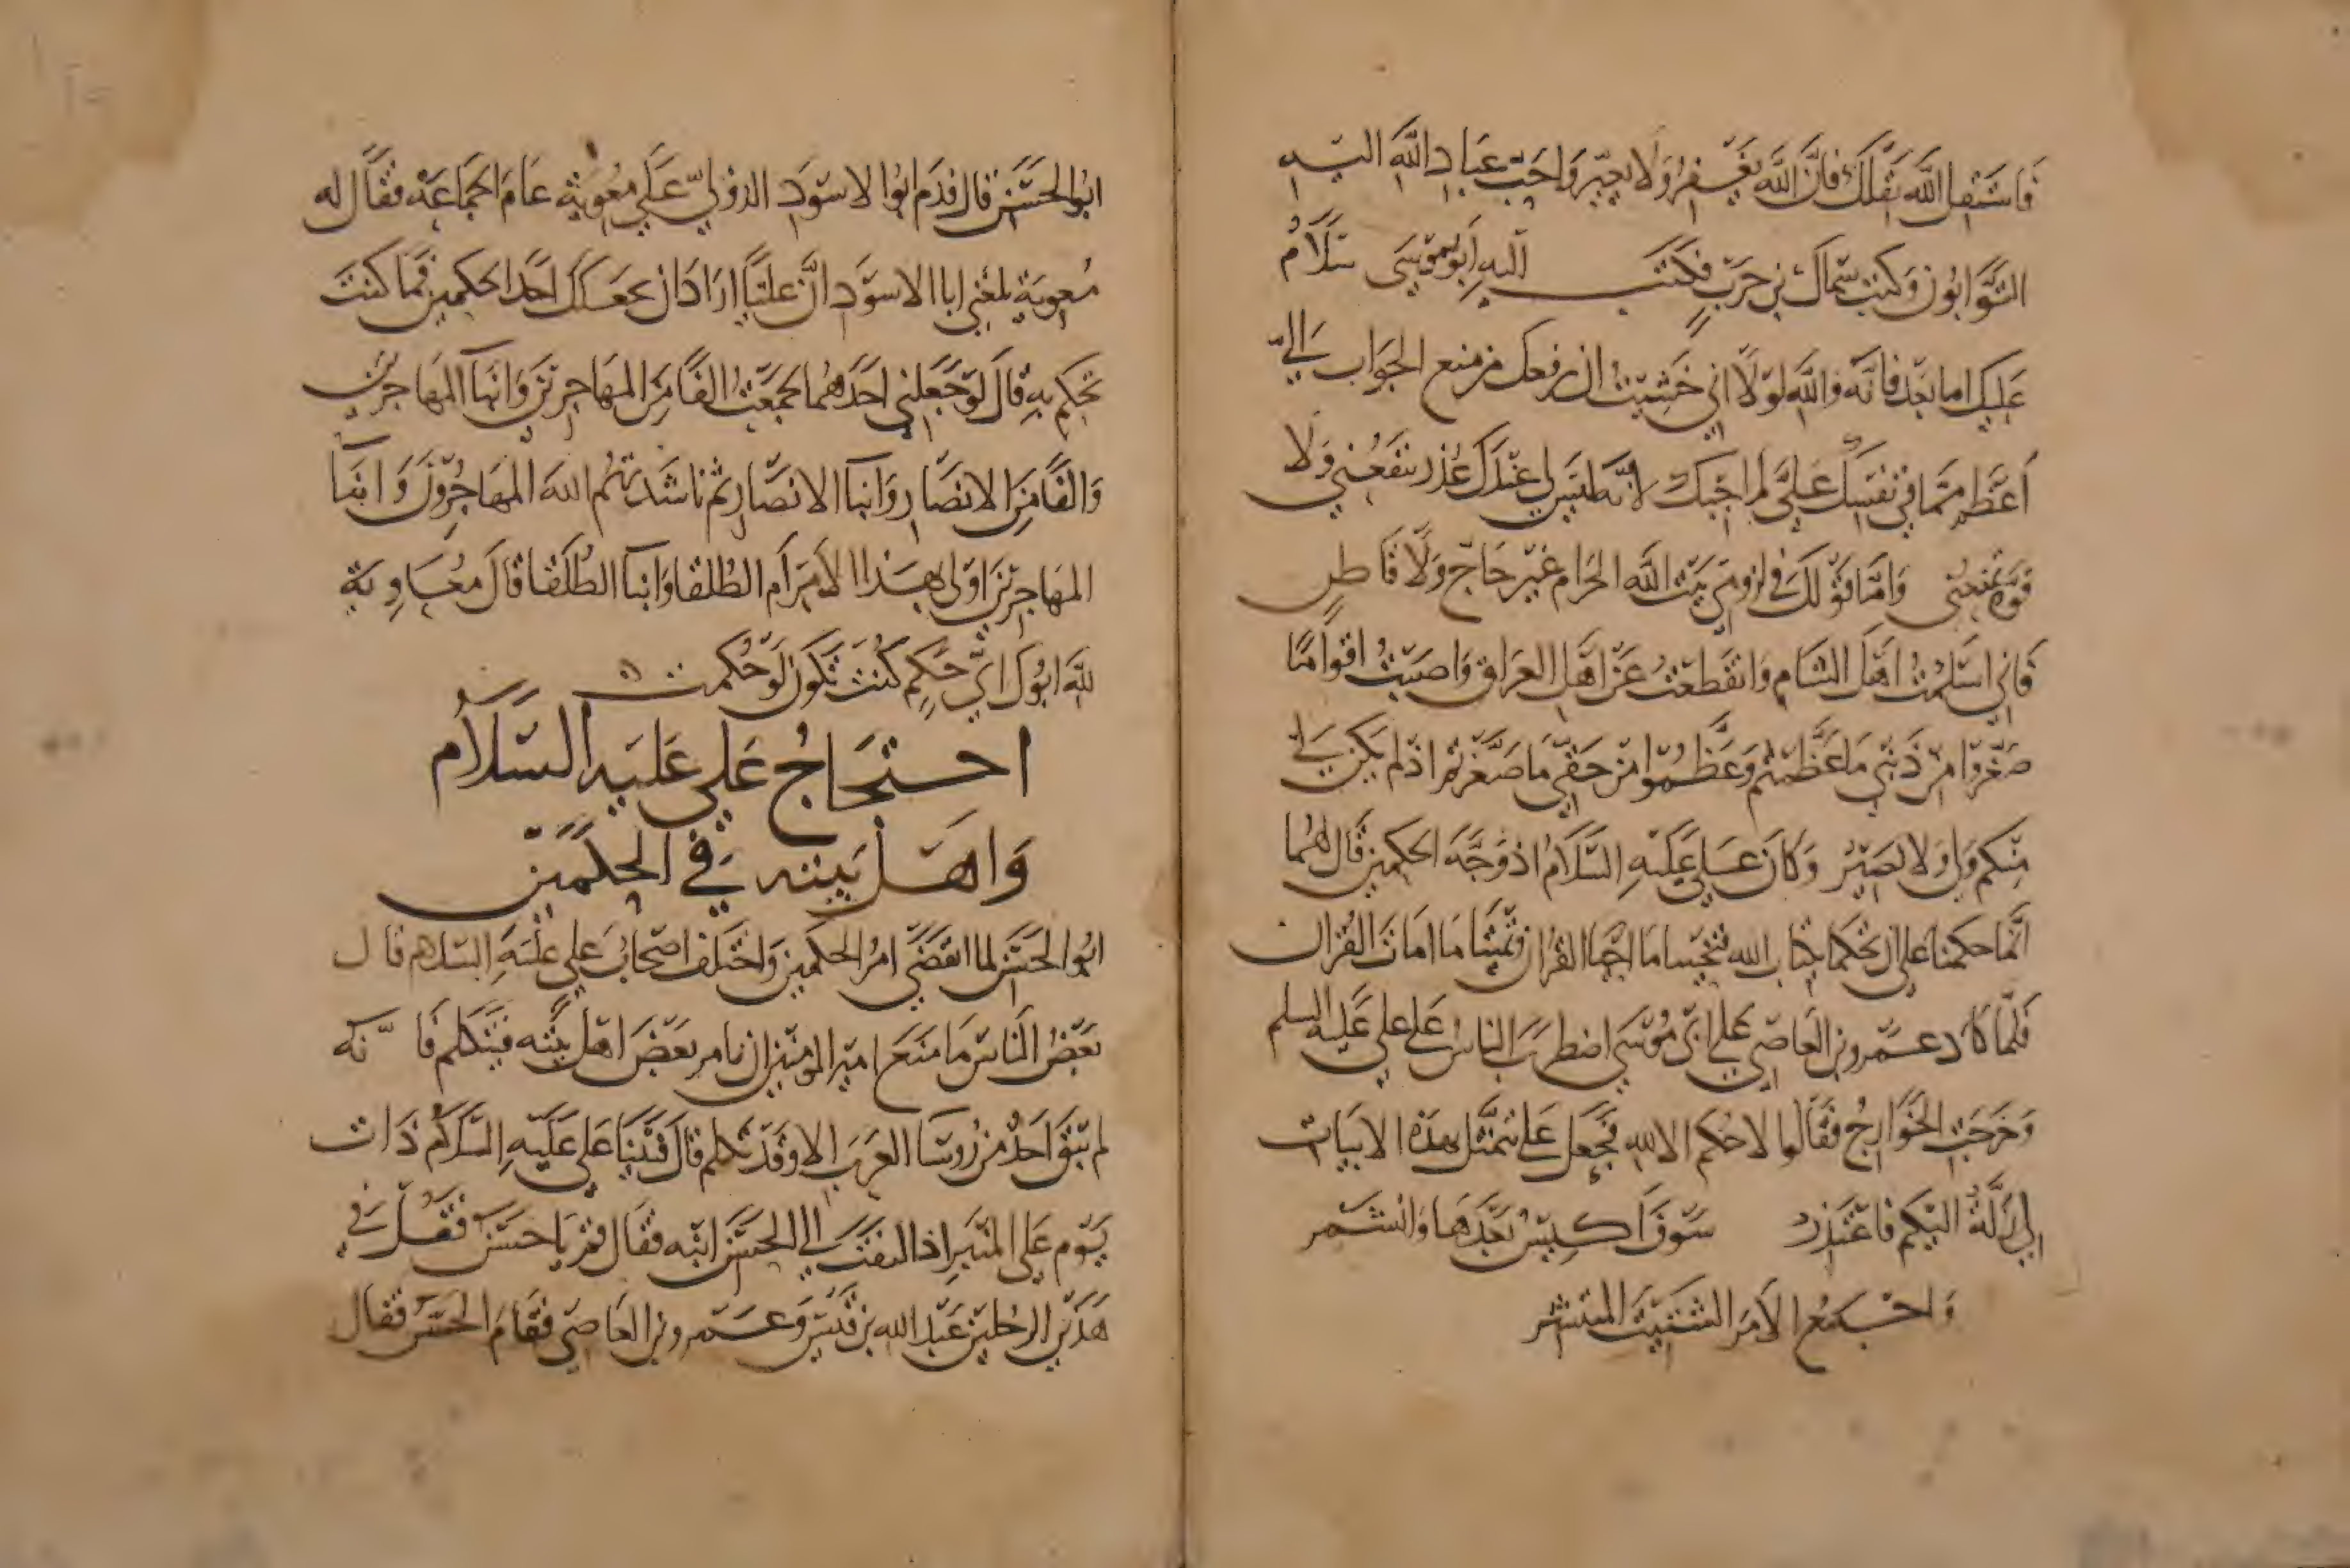 فَاسْتَقِلِ اللَّهَ يُقِلْكَ فَاِنَّ اللَّهَ يَغْفِرُ وَلَا يُعَيِّر وَاحَبّ عِبَادِ اللَّهِ اليه
التَّوَّابُون وَكتب سِمَاك بن حَرْبٍ فَكَتَب اليهِ ابو مُوسَى سَلَامٌ
عَلَيك اما بَعْد فَانَّه وَاللَّهِ لَوْلَا اني خَشِيْتُ ان يرفعك من منع الجَوَاب اليّ
أعْظَمُ مِمَّا فِي نَفْسِكَ عَلَيَّ لم اجِبك لانَّه لَيْسَ لي عِنْدَكَ عُذر يَنْفَعُني وَلَا
قوّة تمنعُني وَامَّا قَوْلكَ في لزومي بَيْت اللَّه الحَرام غَيْر حَاجّ وَلَا قَاطن
فَاني اسْلَمْتُ اهْل الشَّام وَانْقَطَعْتُ عَنْ اهْل العِرَاق وَاصَبْتُ اقْوَامًا
صَغَّروا مِنْ ذَنْبي مَا عَظَّمْتُم وَعَظَّمُوا مِنْ حَقّي مَا صَغَّرتم اذ لم يَكن لي
مِنْكم وَلي وَلا نَصِيْرٌ وَكَانَ عَلي عَلَيْهِ السَّلَامُ اذ وَجَّهَ الحكمين قَال لهُمَا
انَّما حكمنا على ان تَحْكما بِكتاب الله فتحْيِيا مَا احْيَا القُرْان وَتُمِيْتَا مَا امَاتَ القُرْان
فَلَمَّا كَادَ عَمْرو بن العَاصِي عَلَى ابي مُوْسَى اضطرَب الناسُ عَلى علي عَليه السلم
وَخَرَجَتِ الخَوَارِجُ فَقَالُوا لا حُكْم الا لله فَجَعل عَلي يتمَثَّل بهذهِ الابيَات
لي زَلَّةٌ اليْكم فَاعْتَذر سَوْفَ اكِيْسُ بَعْدَهَا وَانشَمر
وَاجْمَعُ الامْرَ الشَّتِيْتَ المنتشر
ابُو الحَسَن قال قدم ابُوا الاسْوَد الدؤلي عَلى مُعوية عَامَ الجَمَاعَة فقَالَ له
مُعوية بلغني ابا الاسْوَد انَّ عَليًّا ارَادَ ان يجعَلك احَد الحكمين فَمَا كنتَ
تَحكم بهِ قَالَ لَوْ جَعَلني احَدَهُمَا لجَمَعْتُ الفًا مِنَ المهَاجرين وَابْنآ المهَاجرين
وَالفًا مِنَ الانصَار وَابنآ الانصَار ثم ناشَدتهُم اللهَ المهَاجِرُوْنَ وَابْنآ
المهَاجرين اوْلى بهَذا الامْر ام الطُلقا وَابْنآ الطُلَقا قَالَ معَاوية
للَّه ابُوكَ ايّ حَكم كُنْتَ تكون لَوْ حُكمت
احتجَاجُ عَلي عَليَه السَّلَام
وَاهْل بَيته في الحكمَين
ابُوا الحَسَن لما انقضَى امْرُ الحكَمين وَاخْتَلَف اصحَابُ عَلي عَلَيْهِ السَّلم قال
بَعْضُ النَّاس مَا مَنَعَ امِيْر المومنين ان يامر بَعْضَ اهْل بَيْته فَيَتَكلم فَانَّه
لم يَبْقَ احَدٌ مِن رُوسَا العَرَب الا وَقَدْ تكلم قال فَبَيْنَا عَلي عَلَيْهِ السَّلَام ذَات
يَوْم عَلى المنْبَر اذ التفت الى الحَسَن ابْنه فَقال قم يَا حَسَن فَقُلْ في
هَذَيْن الرجُليْن عَبْد الله بن قَيْس وَعَمْرو بن العَاصِي فَقَامَ الحَسَن فَقال